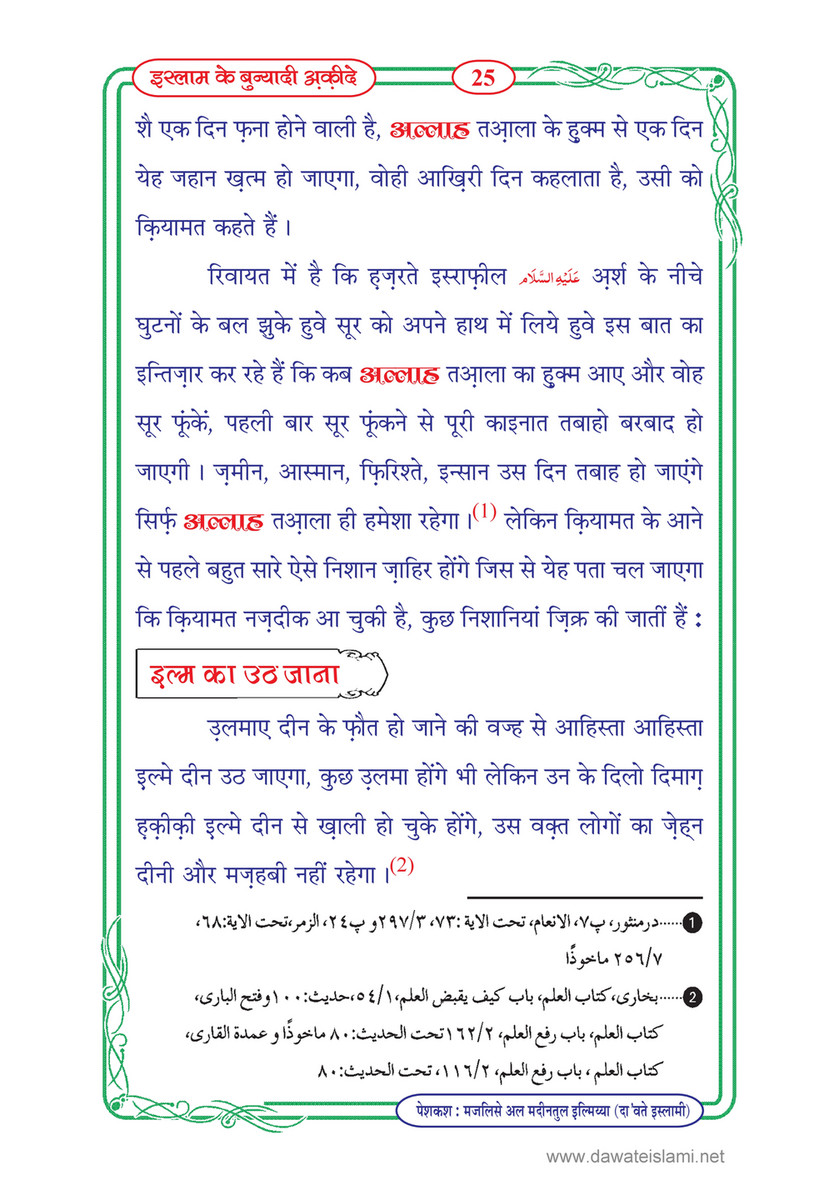 इस्लाम के बुन्यादी अ़क़ीदे
25
शै एक दिन फ़ना होने वाली है, अल्लाह तआ़ला के हुक्म से एक दिन
येह जहान ख़त्म हो जाएगा, वोही आख़िरी दिन कहलाता है, उसी को
क़ियामत कहते हैं ।
रिवायत में है कि ह़ज़रते इस्राफ़ील عَلَيْهِ السَّلَام अ़र्श के नीचे
घुटनों के बल झुके हुवे सूर को अपने हाथ में लिये हुवे इस बात का
इन्तिज़ार कर रहे हैं कि कब अल्लाह तआ़ला का हुक्म आए और वोह
सूर फूंकें, पहली बार सूर फूंकने से पूरी काइनात तबाहो बरबाद हो
जाएगी । ज़मीन, आस्मान, फ़िरिश्ते, इन्सान उस दिन तबाह हो जाएंगे
सिर्फ़ अल्लाह तआ़ला ही हमेशा रहेगा ।(1) लेकिन क़ियामत के आने
से पहले बहुत सारे ऐसे निशान ज़ाहिर होंगे जिस से येह पता चल जाएगा
कि क़ियामत नज़दीक आ चुकी है, कुछ निशानियां ज़िक्र की जातीं हैं :
इल्म का उठ जाना
उ़लमाए दीन के फ़ौत हो जाने की वज्ह से आहिस्ता आहिस्ता
इ़ल्मे दीन उठ जाएगा, कुछ उ़लमा होंगे भी लेकिन उन के दिलो दिमाग़
ह़क़ीक़ी इ़ल्मे दीन से ख़ाली हो चुके होंगे, उस वक़्त लोगों का ज़ेह्न
दीनी और मज़हबी नहीं रहेगा ।(2)
1......درمنثور، پ۷، الانعام، تحت الاية :۷۳، ۲۹۷/۳و پ۲٤، الزمر،تحت الاية:٦۸،
۲٥٦/۷ ماخوذًا
2......بخاری، كتاب العلم، باب كيف يقبض العلم،۱/٥٤،حدیث:۱۰۰وفتح الباری،
كتاب العلم، باب رفع العلم، ۱٦۲/۲تحت الحديث:۸۰ ماخوذًا و عمدة القاری،
كتاب العلم ، باب رفع العلم، ۱۱٦/۲، تحت الحديث:۸۰
पेशकश : मजलिसे अल मदीनतुल इल्मिय्या (दा'वते इस्लामी)
www.dawateislami.net